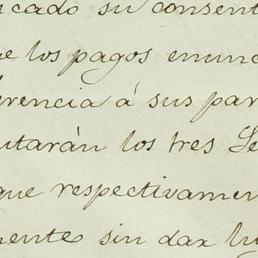 icado su consent
e los pagos enunc
erencia á sus par
utarán los tres Se
que respectivamen
mente sin dar lu